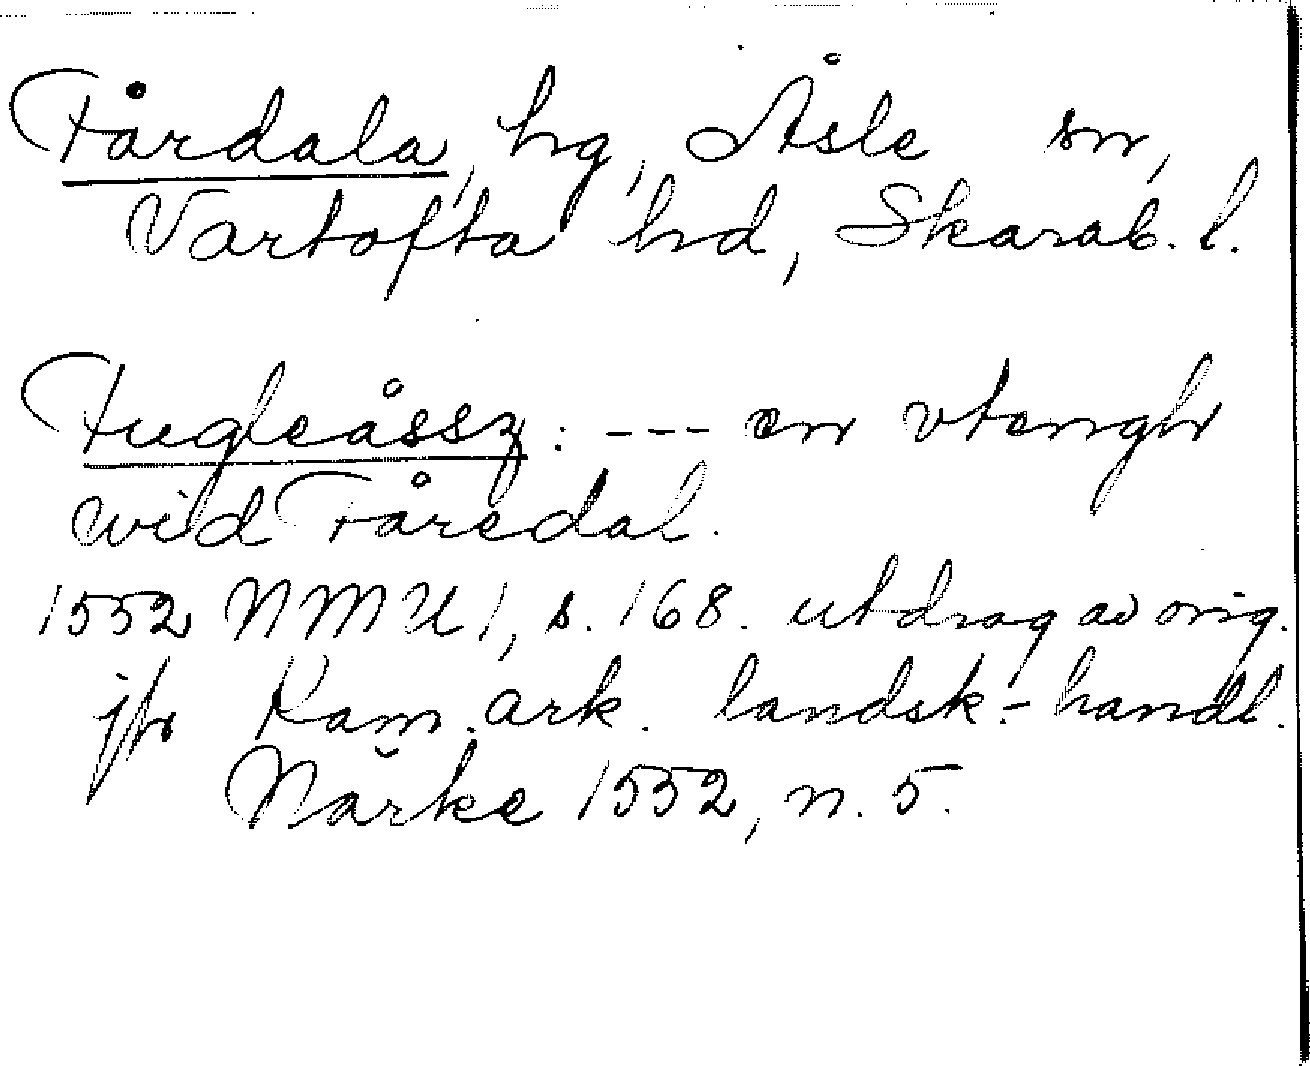 Fårdala, hg, Åsle sn,
Vartofta hd, Skarab. l.
Fugleåssz: --- en vtengh
wid Fåredal.
1552 NMU 1, s. 168. utdrag av orig.
jfr Kam. ark. landsk.-handl.
Närke 1552, n. 5.